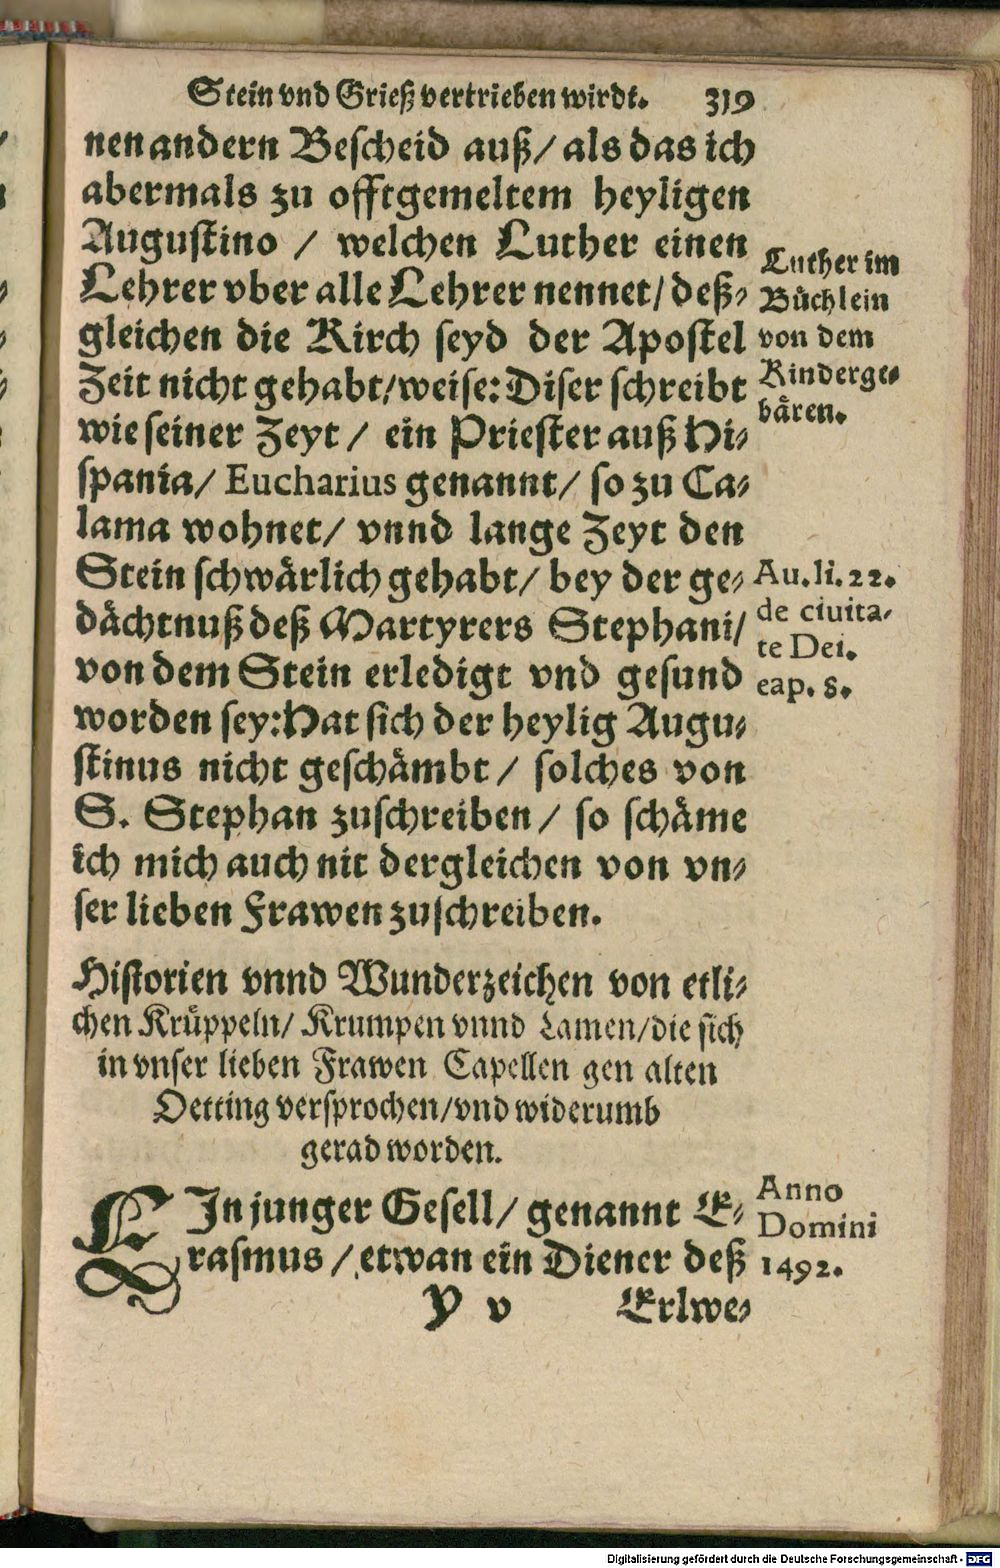 Stein vnd Grieß vertrieben wirdt. 319
nen andern Bescheid auß/ als das ich
abermals zu offtgemeltem heyligen
Augustino / welchen Luther einen
Lehrer vber alle Lehrer nennet/ deß-
gleichen die Kirch seyd der Apostel
Zeit nicht gehabt/ weise: Diser schreibt
wie seiner Zeyt / ein Priester auß Hi-
spania/ Eucharius genannt/ so zu Ca-
lama wohnet/ vnnd lange Zeyt den
Stein schwärlich gehabt/ bey der ge-
dächtnuß deß Martyrers Stephani/
von dem Stein erledigt vnd gesund
worden sey: Hat sich der heylig Augu-
stinus nicht geschämbt / solches von
S. Stephan zuschreiben / so schäme
ich mich auch nit dergleichen von vn-
ser lieben Frawen zuschreiben.
Luther im
Büchlein
von dem
Kinderge-
bären.
Au. li. 22.
de ciuita-
te Dei.
cap. 8.
Historien vnnd Wunderzeichen von etli-
chen Krüppeln/ Krumpen vnnd Lamen/ die sich
in vnser lieben Frawen Capellen gen alten
Oetting versprochen/ vnd widerumb
gerad worden.
EIn junger Gesell/ genannt E-
rasmus / etwan ein Diener deß
Anno
Domini
1492.
Y v Erlwe-
Digitalisierung gefördert durch die Deutsche Forschungsgemeinschaft - DFG